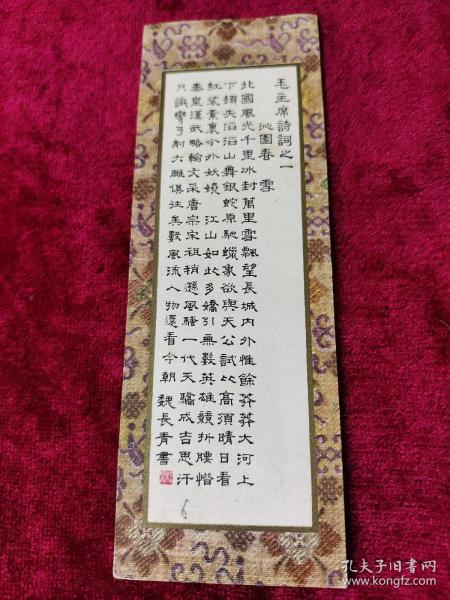 毛主席詩詞之一
沁園春 雪
北國風光千里冰封萬里雪飄望長城內外惟餘莽莽大河上
下頓失滔滔山舞銀蛇原馳蠟象欲與天公試比高須晴日看
紅裝素裹分外妖嬈 江山如此多嬌引無數英雄競折腰惜
秦皇漢武略輸文采唐宗宋祖稍遜風騷一代天驕成吉思汗
只識彎弓射大雕俱往矣數風流人物還看今朝 魏長青書
孔夫子旧书网
www.kongfz.com